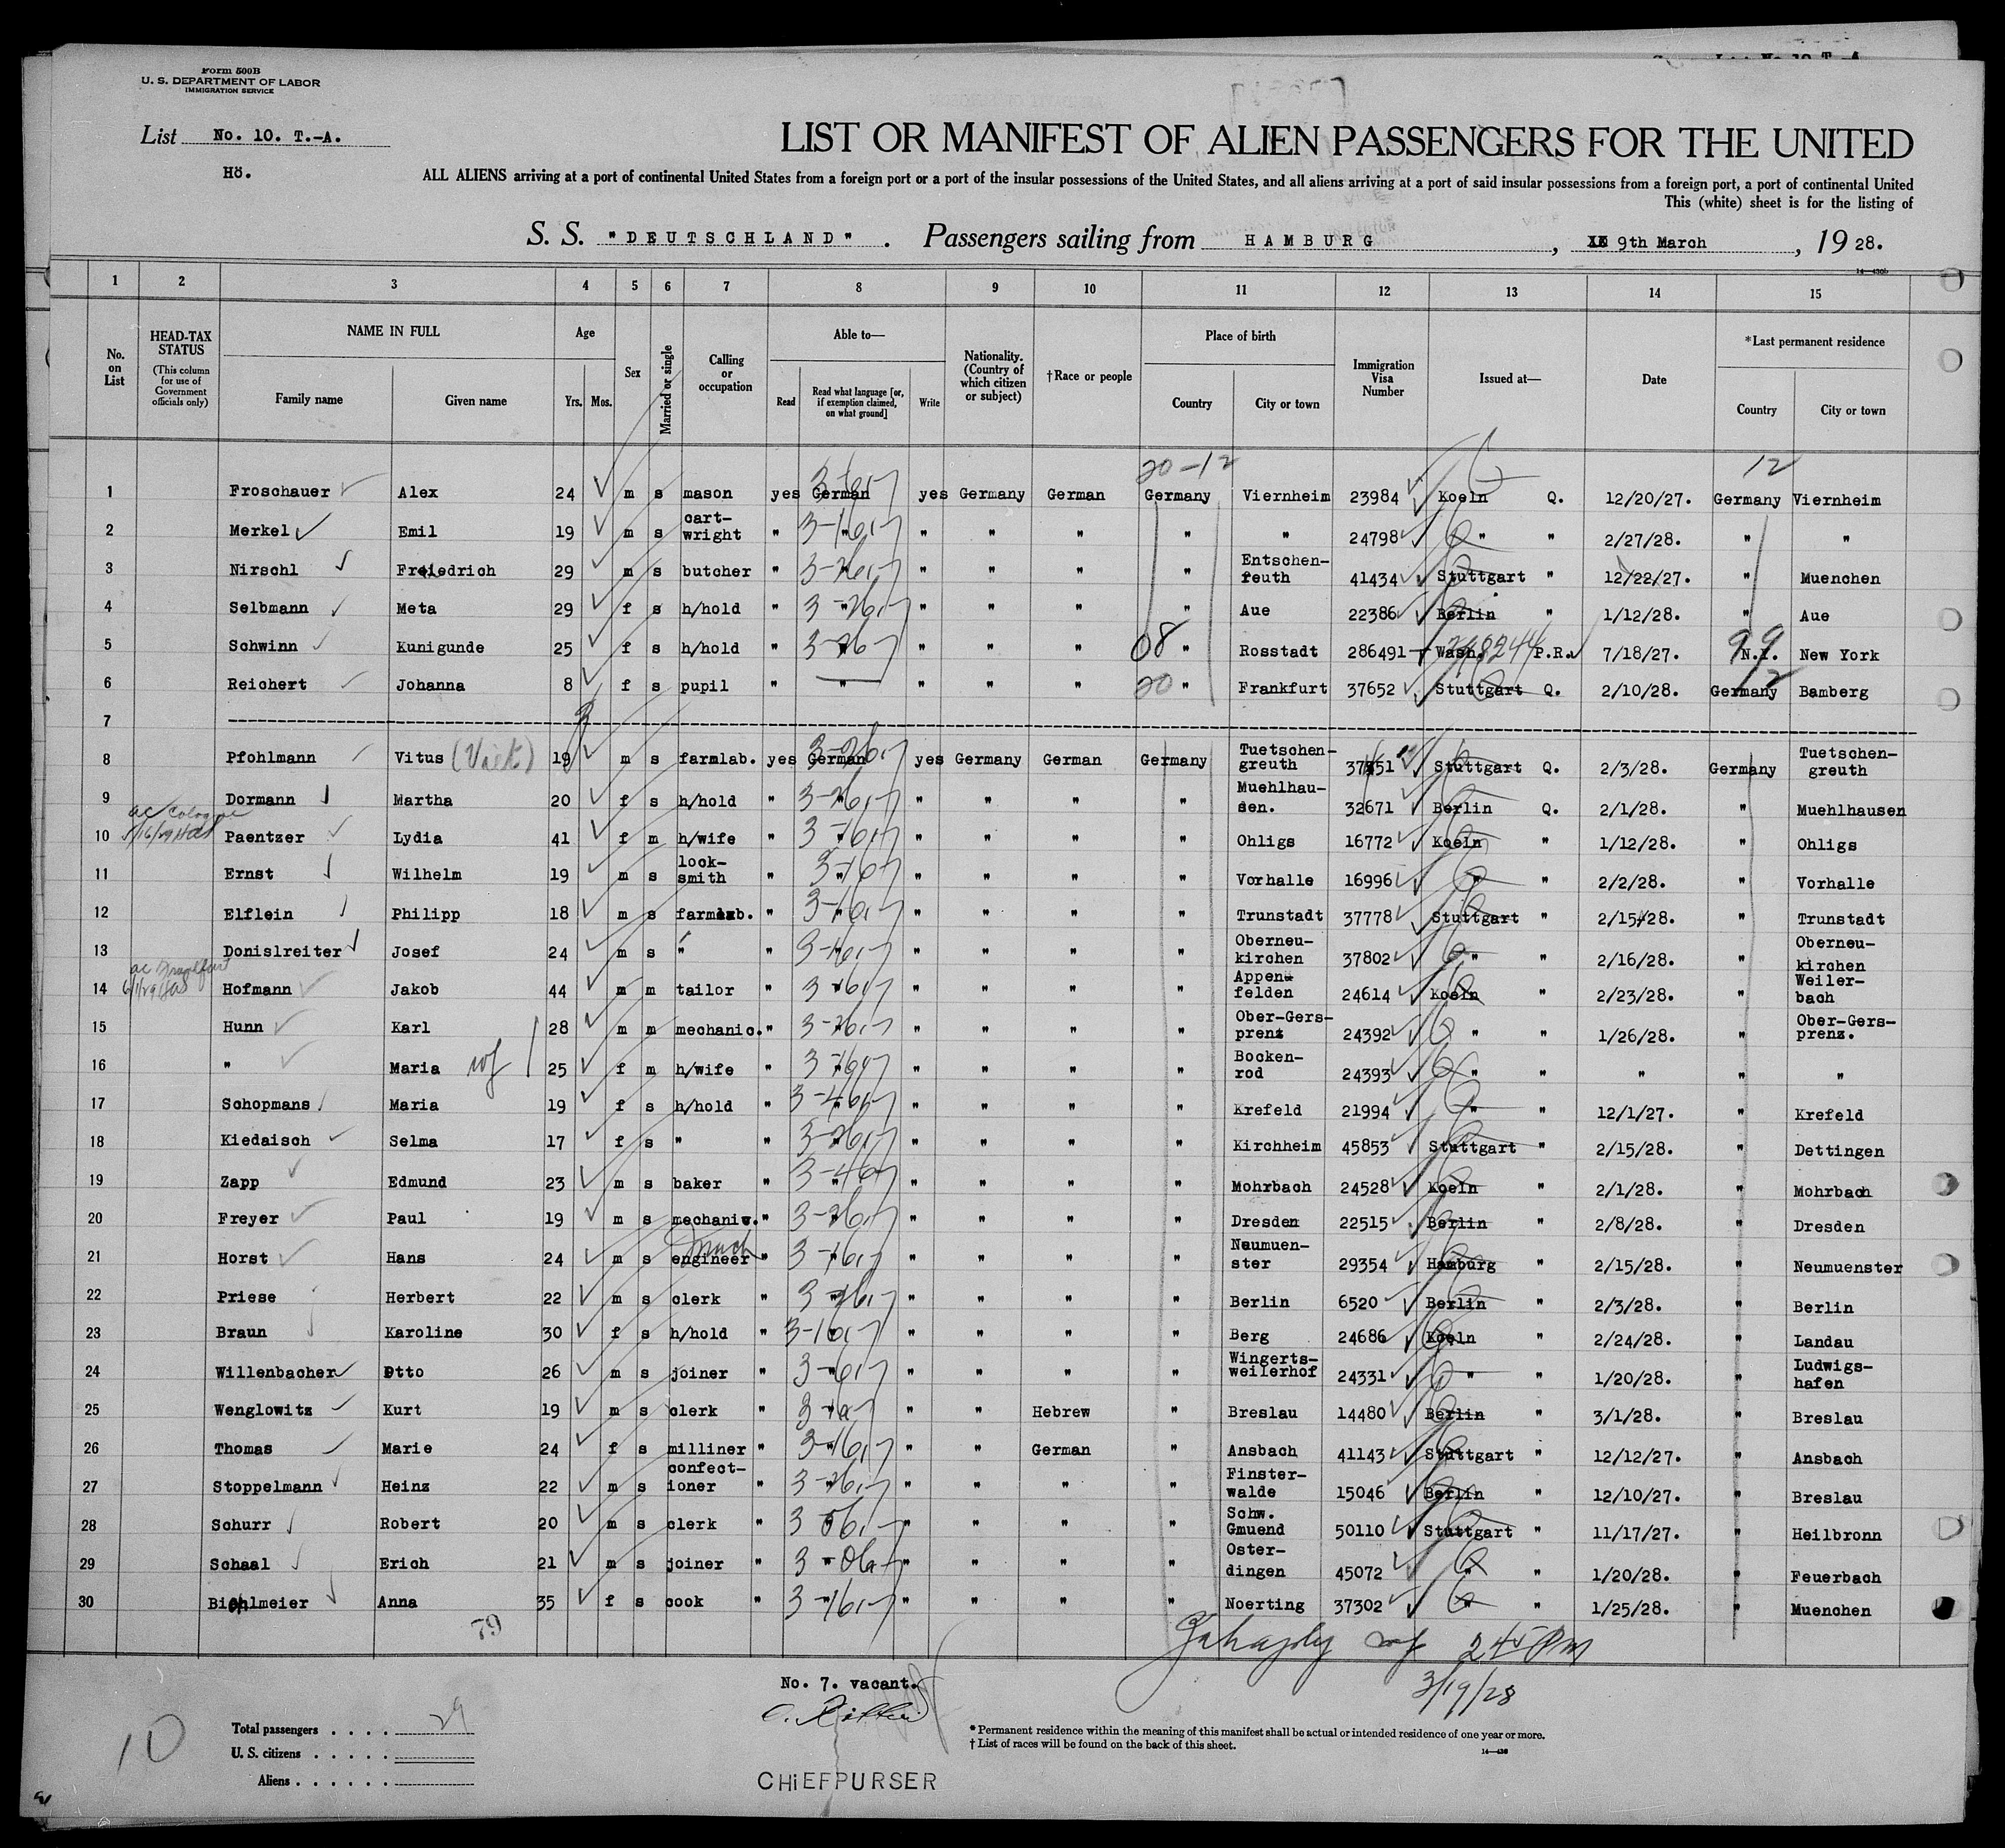 Form 500B
U. S. DEPARTMENT OF LABOR
IMMIGRATION SERVICE
List No. 10. T.-A.
Hö.
LIST OR MANIFEST OF ALIEN PASSENGERS FOR THE UNITED
ALL ALIENS arriving at a port of continental United States from a foreign port or a port of the insular possessions of the United States, and all aliens arriving at a port of said insular possessions from a foreign port, a port of continental United
This (white) sheet is for the listing of
S. S. "DEUTSCHLAND". Passengers sailing from HAMBURG, 9th March, 1928.
1 2 3 4 5 6 7 8 9 10 11 12 13 14 15
No. on List
HEAD-TAX STATUS (This column for use of Government officials only)
NAME IN FULL Family name Given name
Age Yrs. Mos.
Sex
Married or single
Calling or occupation
Able to— Read Read what language [or, if exemption claimed, on what ground] Write
Nationality. (Country of which citizen or subject)
†Race or people
Place of birth Country City or town
Immigration Visa Number
Issued at—
Date
*Last permanent residence Country City or town
20-12 12
1 Froschauer Alex 24 m s mason yes German yes Germany German Germany Viernheim 23984 Koeln Q. 12/20/27. Germany Viernheim
2 Merkel Emil 19 m s cart-wright " " " " " " " 24798 " " 2/27/28. " "
3 Nirschl Friedrich 29 m s butcher " " " " " " Entschen-reuth 41434 Stuttgart " 12/22/27. " Muenchen
4 Selbmann Meta 29 f s h/hold " " " " " " Aue 22386 Berlin " 1/12/28. " Aue
5 Schwinn Kunigunde 25 f s h/hold " " " " " 08 " Rosstadt 286491 Wash. P.R. 7/18/27. 99 N.Y. New York
6 Reichert Johanna 8 f s pupil " " " " " 20 " Frankfurt 37652 Stuttgart Q. 2/10/28. 12 Germany Bamberg
7
8 Pfohlmann Vitus 19 m s farmlab. yes German yes Germany German Germany Tuetschen-greuth Stuttgart Q. 2/3/28. Germany Tuetschen-greuth
9 Dormann Martha 20 f s h/hold " " " " " " Muehlhau-sen. 32671 Berlin Q. 2/1/28. " Muehlhausen
ac Cologne
10 Paentzer Lydia 41 f m h/wife " " " " " " Ohligs 16772 Koeln " 1/12/28. " Ohligs
11 Ernst Wilhelm 19 m s lock-smith " " " " " " Vorhalle 16996 " " 2/2/28. " Vorhalle
12 Elflein Philipp 18 m s farmlab. " " " " " " Trunstadt 37778 Stuttgart " 2/15/28. " Trunstadt
13 Donislreiter Josef 24 m s " " " " " " " Oberneu-kirchen 37802 " " 2/16/28. " Oberneu-kirchen
ac Frankfurt
14 Hofmann Jakob 44 m m tailor " " " " " " Appen-felden 24614 Koeln " 2/23/28. " Weiler-bach
15 Hunn Karl 28 m m mechanic. " " " " " " Ober-Gers-prenz 24392 " " 1/26/28. " Ober-Gers-prenz.
16 " Maria wf 25 f m h/wife " " " " " " Bocken-rod 24393 " " " " "
17 Schopmans Maria 19 f s h/hold " " " " " " Krefeld 21994 " " 12/1/27. " Krefeld
18 Kiedaisch Selma 17 f s " " " " " " " Kirchheim 45853 Stuttgart " 2/15/28. " Dettingen
19 Zapp Edmund 23 m s baker " " " " " " Mohrbach 24528 Koeln " 2/1/28. " Mohrbach
20 Freyer Paul 19 m s mechanic. " " " " " " Dresden 22515 Berlin " 2/8/28. " Dresden
21 Horst Hans 24 m s mech engineer " " " " " " Neumuen-ster 29354 Hamburg " 2/15/28. " Neumuenster
22 Priese Herbert 22 m s clerk " " " " " " Berlin 6520 Berlin " 2/3/28. " Berlin
23 Braun Karoline 30 f s h/hold " " " " " " Berg 24686 Koeln " 2/24/28. " Landau
24 Willenbacher Otto 26 m s joiner " " " " " " Wingerts-weilerhof 24331 " " 1/20/28. " Ludwigs-hafen
25 Wenglowitz Kurt 19 m s clerk " " " " Hebrew " Breslau 14480 Berlin " 3/1/28. " Breslau
26 Thomas Marie 24 f s milliner " " " " German " Ansbach 41143 Stuttgart " 12/12/27. " Ansbach
27 Stoppelmann Heinz 22 m s confect-ioner " " " " " " Finster-walde 15046 Berlin " 12/10/27. " Breslau
28 Schurr Robert 20 m s clerk " " " " " " Schw. Gmuend 50110 Stuttgart " 11/17/27. " Heilbronn
29 Schaal Erich 21 m s joiner " " " " " " Oster-dingen 45072 " " 1/20/28. " Feuerbach
30 Bichlmeier Anna 35 f s cook " " " " " " Noerting 37302 " " 1/25/28. " Muenchen
2 45 PM
3/19/28
No. 7. vacant.
10
Total passengers . . . . 29
U. S. citizens . . . . .
Aliens . . . . . .
CHIEFPURSER
* Permanent residence within the meaning of this manifest shall be actual or intended residence of one year or more.
† List of races will be found on the back of this sheet.